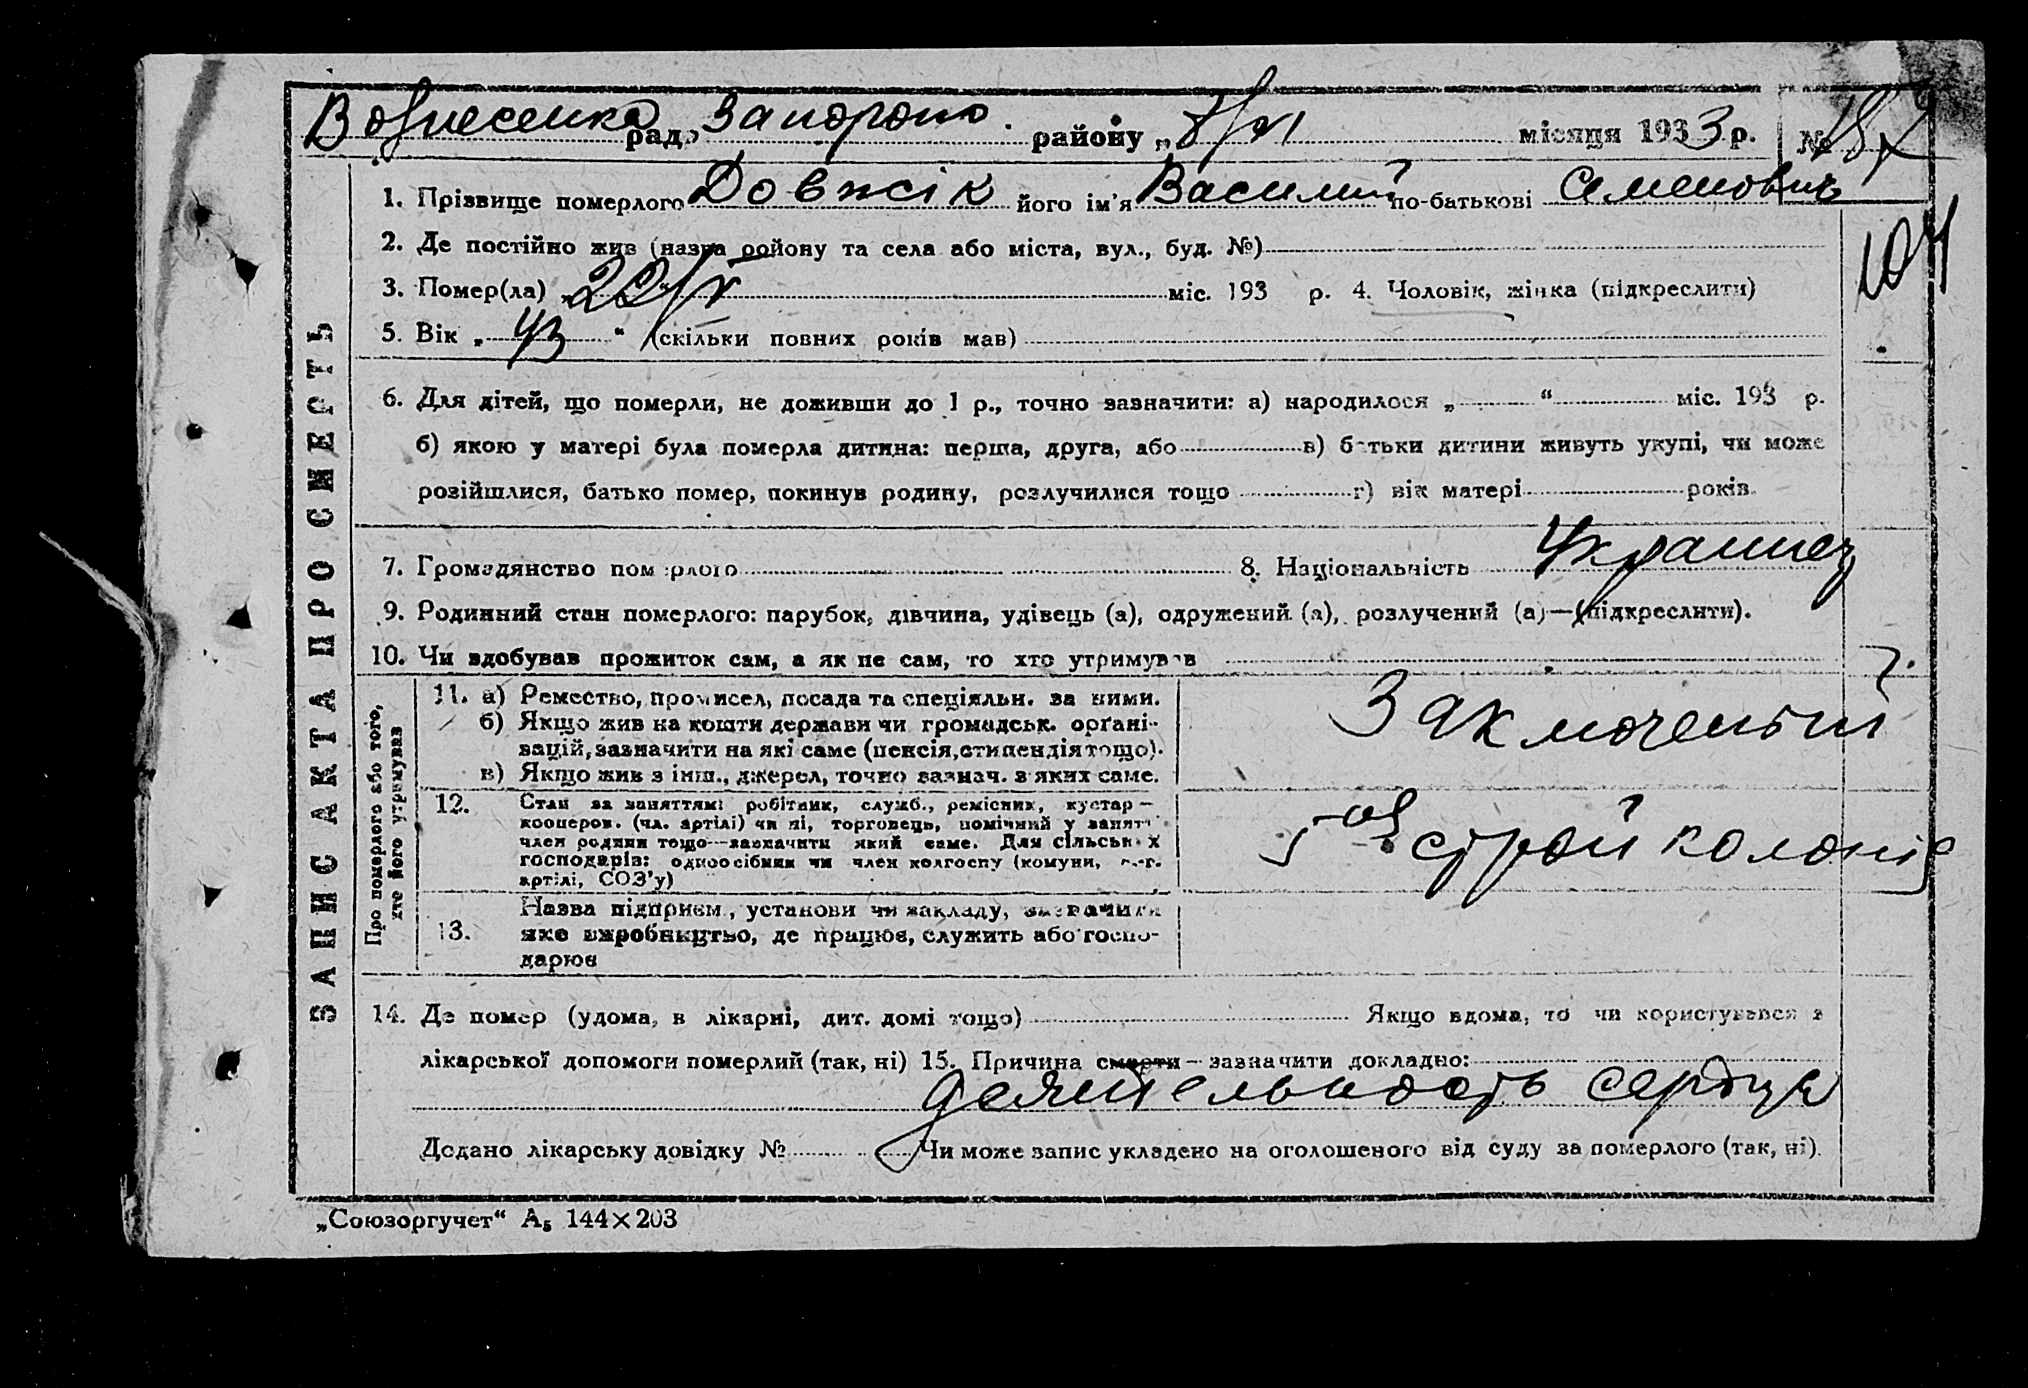 Вознесенка рад. Запорожс. району „8/VI місяця 1933 р. №
1. Прізвище померлого Довжік його ім'я Василий по-батькові Семенович
2. Де постійно жив (назва ройону та села або міста, вул., буд. №)
104
3. Помер(ла) „ 20/V міс. 193 р. 4. Чоловік, жінка (підкреслити)
5. Вік „ 43 “ (скільки повних років мав)
6. Для дітей, що померли, не доживши до 1 р., точно зазначити: а) народилося „ “ міс. 193 р.
б) якою у матері була померла дитина: перша, друга, або в) батьки дитини живуть укупі, чи може
розійшлися, батько помер, покинув родину, розлучилися тощо г) вік матері років
7. Громадянство померлого 8. Національність Украинец
9. Родинний стан померлого: парубок, дівчина, удівець (а), одружений (а), розлучений (а)—(підкреслити).
10. Чи здобував прожиток сам, а як не сам, то хто утримував
ЗАПИС АКТА ПРО СМЕРТЬ
Про померлого або того, хто його утримував
11. а) Ремество, промисел, посада та спеціяльн. за ними.
б) Якщо жив на кошти держави чи громадськ. орґані-
зацій, зазначити на які саме (пенсія, стипендія тощо).
в) Якщо жив з інш., джерел, точно зазнач. з яких саме.
Заключеный
12. Стан за заняттям: робітник, служб., ремісник, кустар—
кооперов. (чл. артілі) чи ні, торговець, помічний у занятті
член родини тощо—зазначити який саме. Для сільських
господарів: одноосібник чи член колгоспу (комуни, с.-г.
артілі, СОЗ'у)
5-ой строй колонне
13. Назва підприєм., установи чи закладу, зазначити
яке виробництво, де працює, служить або госпо-
дарює
14. Де помер (удома, в лікарні, дит. домі тощо) Якщо вдома, то чи користувався з
лікарської допомоги померлий (так, ні) 15. Причина смерти—зазначити докладно:
деятельность сердца
Додано лікарську довідку № Чи може запис укладено на оголошеного від суду за померлого (так, ні).
„Союзоргучет“ А₅ 144×203